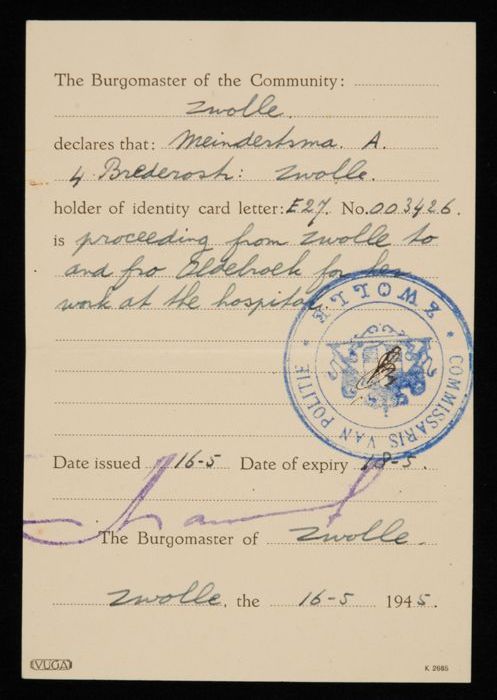 The Burgomaster of the Community:
Zwolle.
declares that: Meindertsma. A.
4 Brederostr: Zwolle.
holder of identity card letter: E27. No. 003426.
is proceeding from Zwolle to
and fro Eldebroek for her
work at the hospital.
ZWOLLE
* COMMISSARIS VAN POLITIE *
Date issued 16-5 Date of expiry 18-5.
The Burgomaster of Zwolle.
Zwolle, the 16-5 1945.
VUGA
K 2685